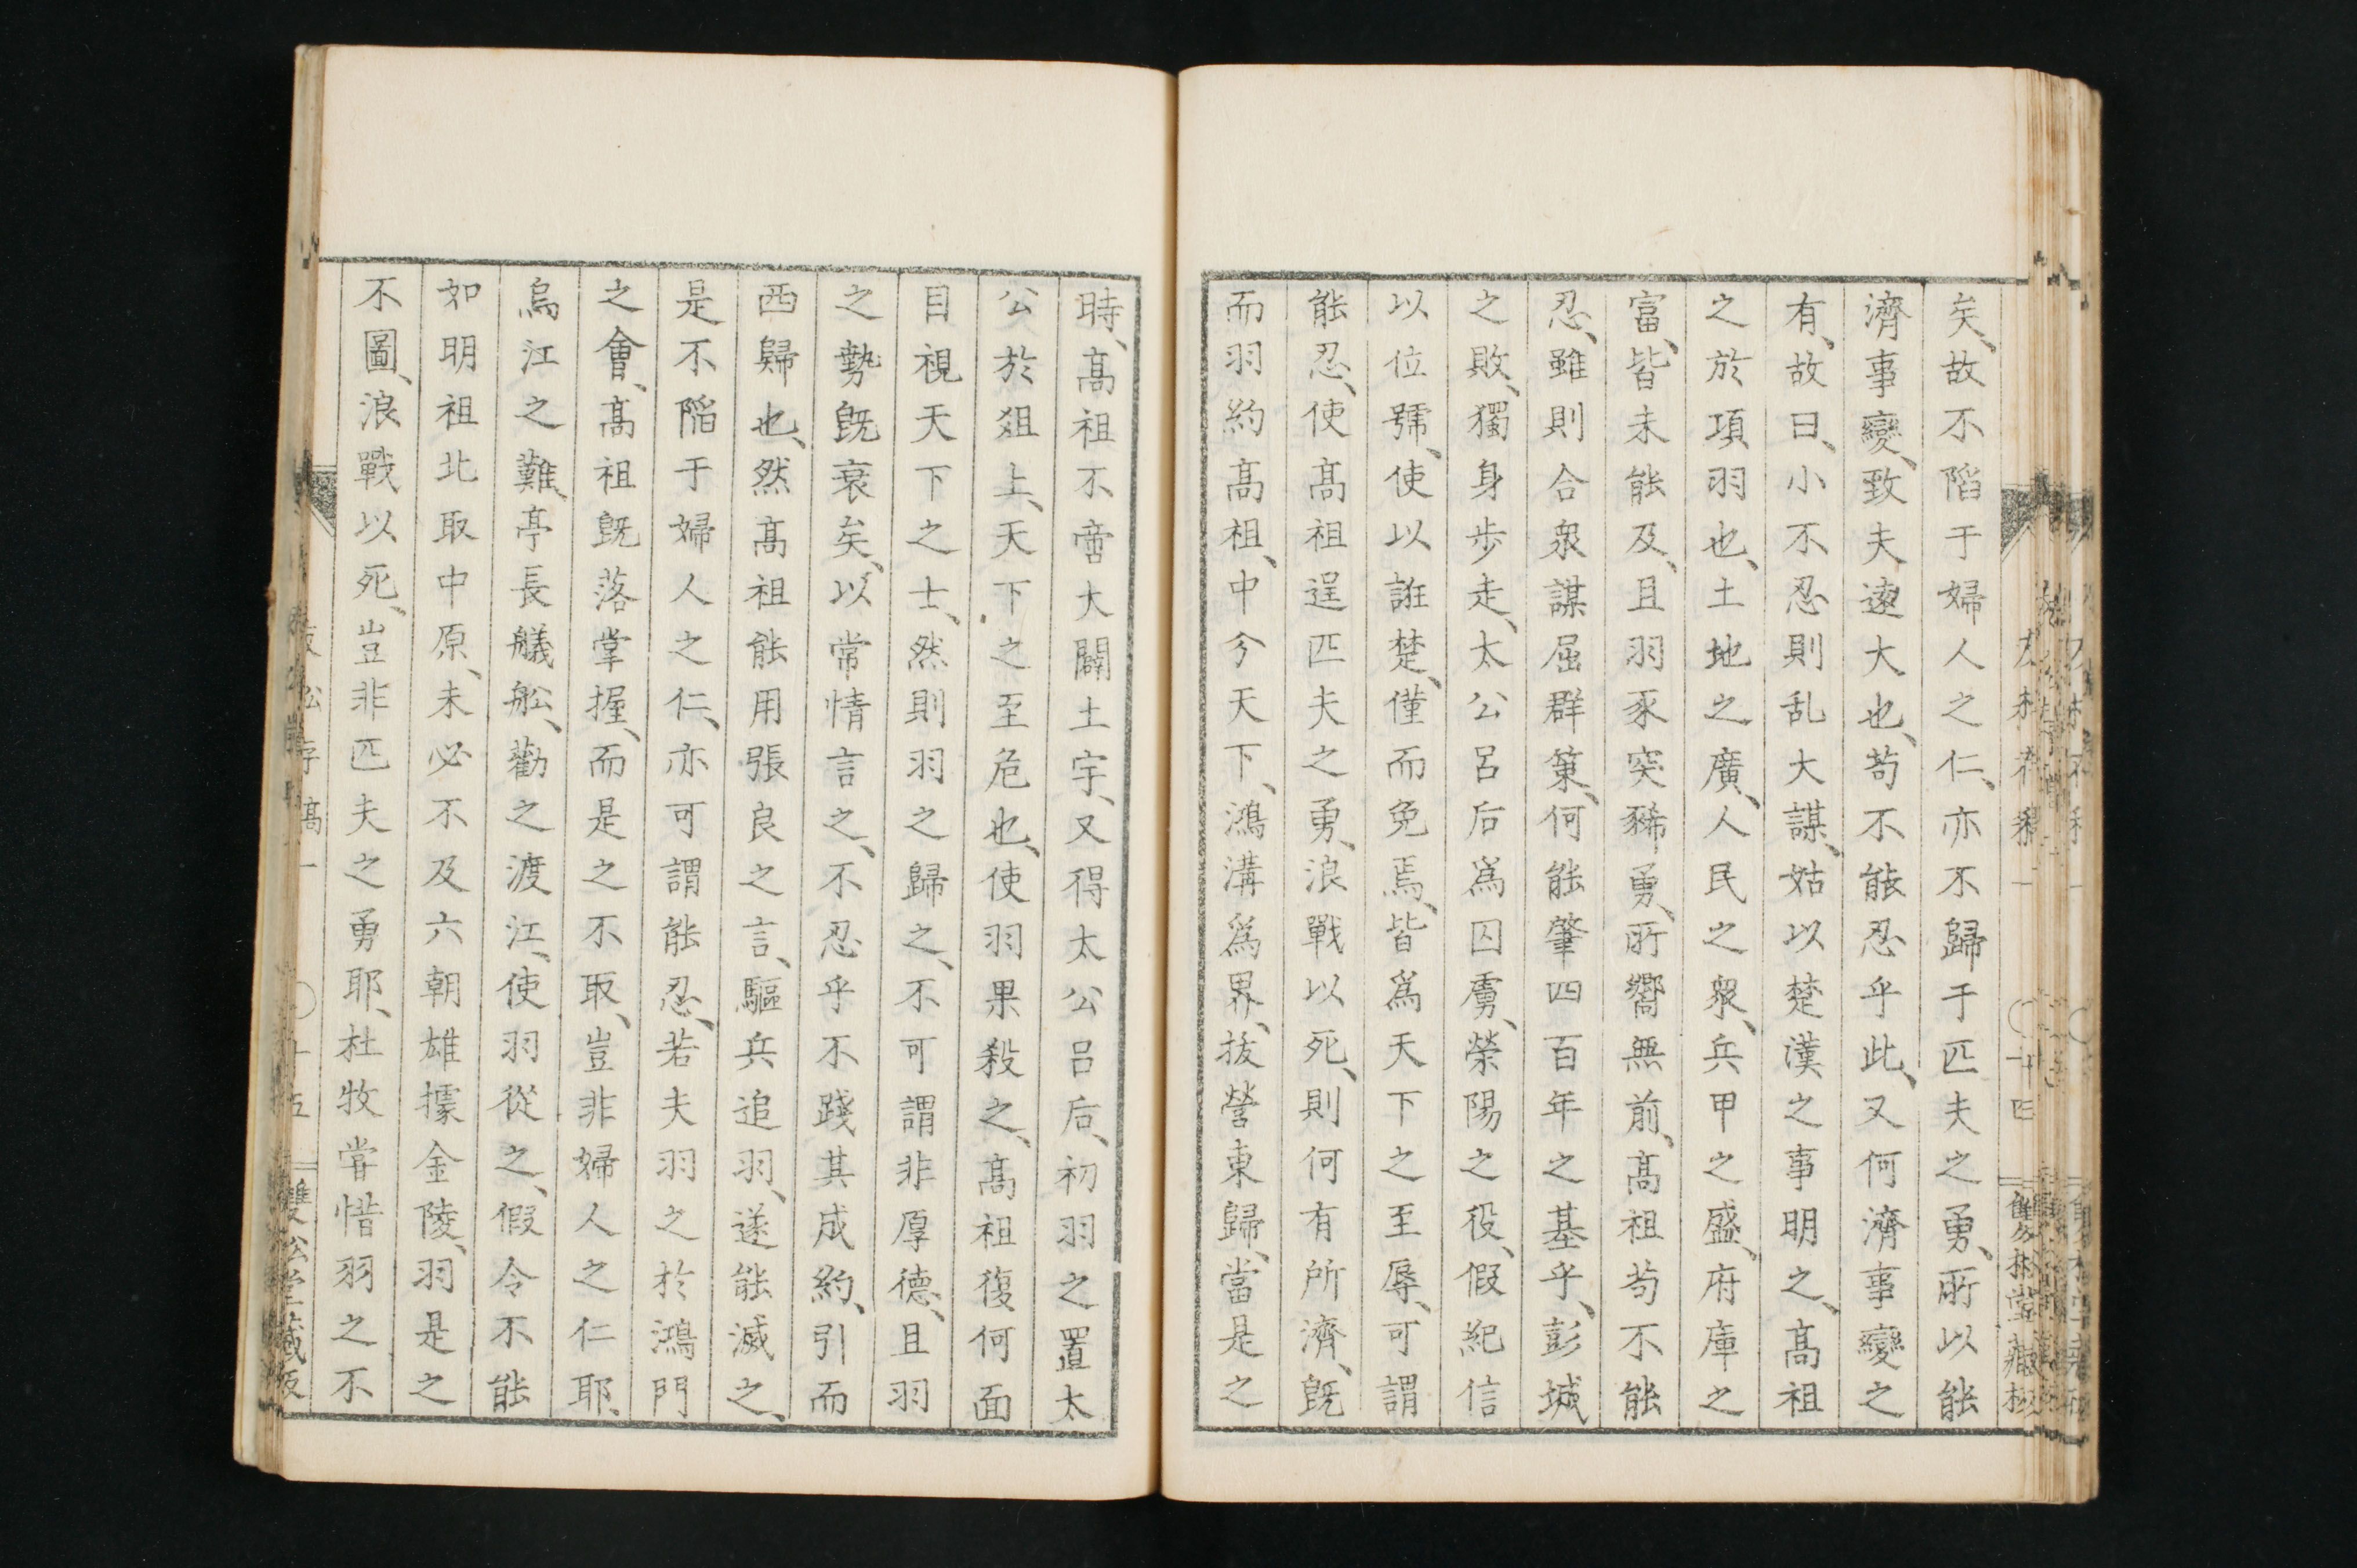 矣、故不陷于婦人之仁、亦不歸于匹夫之勇、所以能
濟事變、致夫遠大也、苟不能忍乎此、又何濟事變之
有、故曰、小不忍則乱大謀、姑以楚漢之事明之、髙祖
之於項羽也、土地之廣、人民之衆、兵甲之盛、府庫之
富、皆未能及、且羽豕突豨勇、所嚮無前、髙祖苟不能
忍、雖則合衆謀屈群策、何能肇四百年之基乎、彭城
之敗、獨身步走、太公呂后爲囚虜、榮陽之役、假紀信
以位號、使以誑楚、僅而免焉、皆爲天下之至辱、可謂
能忍、使髙祖逞匹夫之勇、浪戰以死、則何有所濟、既
而羽約髙祖、中分天下、鴻溝爲界、拔營東歸、當是之
時、髙祖不啻大闢土宇、又得太公呂后、初羽之置太
公於俎上、天下之至危也、使羽果殺之、髙祖復何面
目視天下之士、然則羽之歸之、不可謂非厚德、且羽
之勢既衰矣、以常情言之、不忍乎不踐其成約、引而
西歸也、然髙祖能用張良之言、驅兵追羽、遂能滅之、
是不陷于婦人之仁、亦可謂能忍、若夫羽之於鴻門
之會、髙祖既落掌握、而是之不取、豈非婦人之仁耶、
烏江之難、亭長艤舩、勸之渡江、使羽從之、假令不能
如明祖北取中原、未必不及六朝雄據金陵、羽是之
不圖、浪戰以死、豈非匹夫之勇耶、杜牧嘗惜羽之不
雙松堂藏板